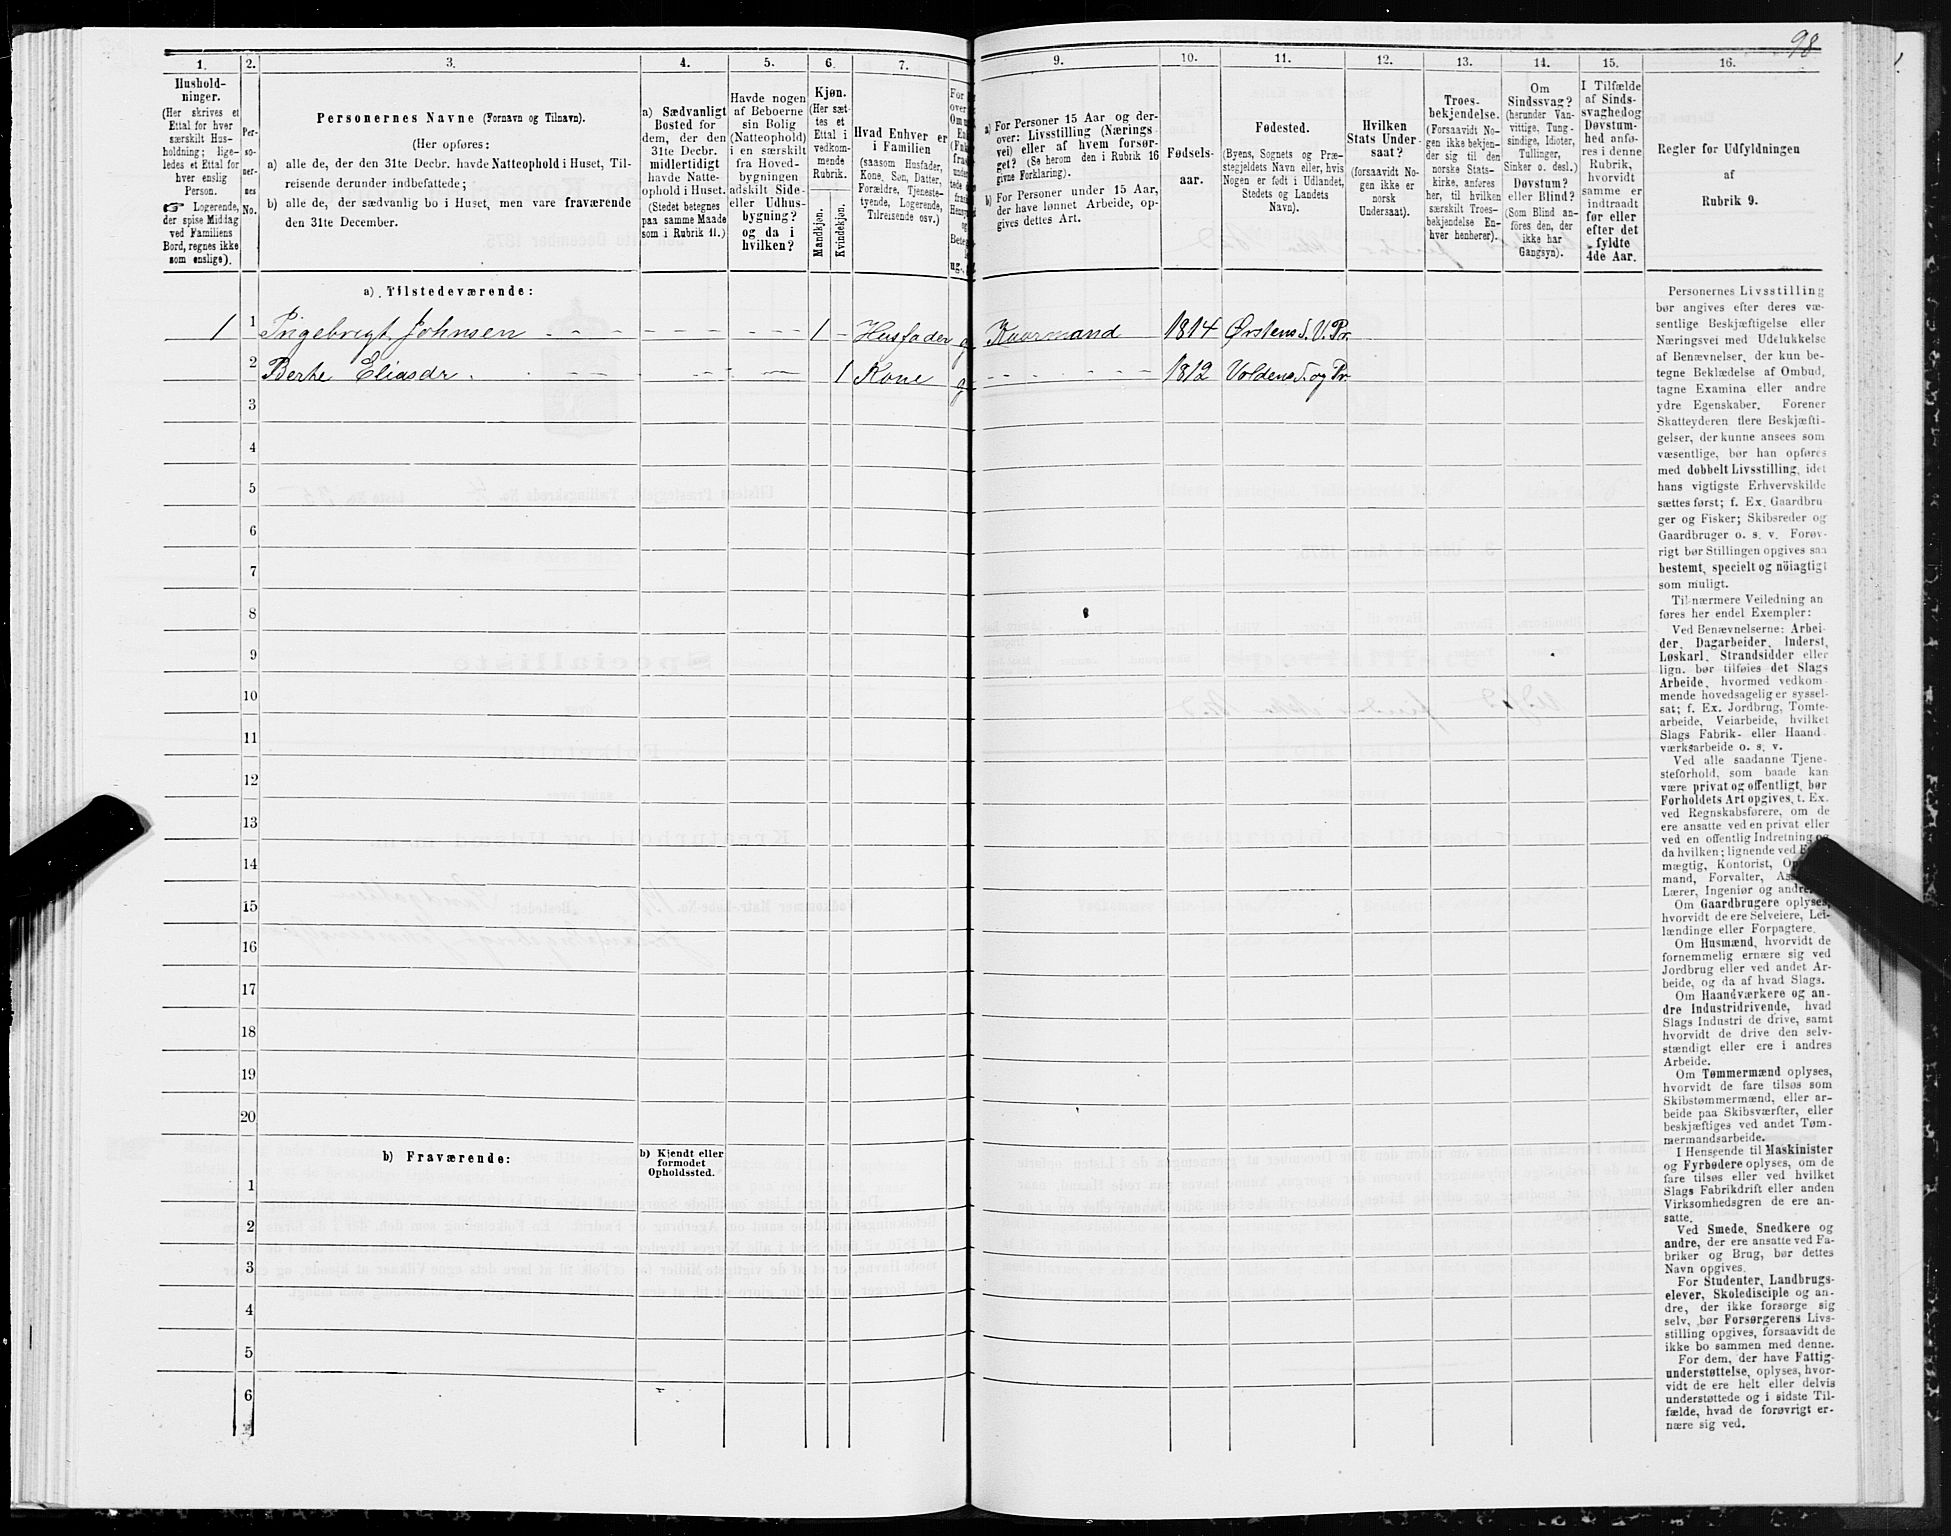 98
1.
Hushold-
ninger.
(Her skrives et
Ettal for hver
særskilt Hus-
holdning; lige-
ledes et Ettal for
hver enslig
Person.
☞ Logerende,
der spise Middag
ved Familiens
Bord, regnes ikke
som enslige).
2.
Per-
so-
ner-
nes
No.
3.
Personernes Navne (Fornavn og Tilnavn).
(Her opføres:
a) alle de, der den 31te Decbr. havde Natteophold i Huset, Til-
reisende derunder indbefattede;
b) alle de, der sædvanlig bo i Huset, men vare fraværende
den 31te December.
4.
a) Sædvanligt
Bosted for
dem, der den
31te Decbr.
midlertidigt
havde Natte-
ophold i Huset.
(Stedet betegnes
paa samme Maade
som i Rubrik 11.)
5.
Havde nogen
af Beboerne
sin Bolig
(Natteophold)
i en særskilt
fra Hoved-
bygningen
adskilt Side-
eller Udhus-
bygning?
og da i
hvilken?
6.
Kjøn.
(Her sæt-
tes et
Ettal i
vedkom-
mende
Rubrik.
Mandkjøn.
Kvindekjøn.
7.
Hvad Enhver er
i Familien
(saasom Husfader,
Kone, Søn, Datter,
Forældre, Tjeneste-
tyende, Logerende,
Tilreisende osv.)
9.
a) For Personer 15 Aar og der-
over: Livsstilling (Nærings-
vei) eller af hvem forsør-
get? (Se herom den i Rubrik 16
givne Forklaring).
b) For Personer under 15 Aar,
der have lønnet Arbeide, op-
gives dettes Art.
10.
Fødsels-
aar.
11.
Fødested.
(Byens, Sognets og Præ-
stegjeldets Navn eller, hvis
Nogen er født i Udlandet,
Stedets og Landets
Navn).
12.
Hvilken
Stats Under-
saat?
(forsaavidt No-
gen ikke er
norsk
Undersaat).
13.
Troes-
bekjendelse.
(Forsaavidt No-
gen ikke bekjen-
der sig til den
norske Stats-
kirke, anføres
her, til hvilken
særskilt Troes-
bekjendelse En-
hver henhører).
14.
Om
Sindssvag?
(herunder Van-
vittige, Tung-
sindige, Idioter,
Tullinger,
Sinker o. desl.)
Døvstum?
eller Blind?
(Som Blind an-
føres den, der
ikke har
Gangsyn).
15.
I Tilfælde
af Sinds-
svaghed og
Døvstum-
hed anfø-
res i denne
Rubrik,
hvorvidt
samme er
indtraadt
før eller
efter det
fyldte
4de Aar.
16.
Regler for Udfyldningen
af
Rubrik 9.
a) Tilstedeværende:
1 1 Ingebrigt Johnsen 1 Husfader g. Kaarmand 1814 Ørstens S. V. Pr.
2 Berte Eliasdr. 1 Kone g. 1812 Voldens S. og Pr.
3
4
5
6
7
8
9
10
11
12
13
14
15
16
17
18
19
20
b) Fraværende:
b) Kjendt eller
formodet
Opholdssted.
1
2
3
4
5
6
Personernes Livsstilling
bør angives efter deres væ-
sentlige Beskjæftigelse eller
Næringsvei med Udelukkelse
af Benævnelser, der kun be-
tegne Beklædelse af Ombud,
tagne Examina eller andre
ydre Egenskaber. Forener
Skatteyderen flere Beskjæfti-
gelser, der kunne ansees som
væsentlige, bør han opføres
med dobbelt Livsstilling, idet
hans vigtigste Erhvervskilde
sættes først; f. Ex. Gaardbru-
ger og Fisker; Skibsreder og
Gaardbruger o. s. v. Forøv-
rigt bør Stillingen opgives saa
bestemt, specielt og nöiagtigt
som muligt.
Til nærmere Veiledning an
føres her endel Exempler:
Ved Benævnelserne: Arbei-
der, Dagarbeider, Inderst,
Løskarl, Strandsidder eller
lign. bør tilføies det Slags
Arbeide, hvormed vedkom
mende hovedsagelig er syssel-
sat; f. Ex. Jordbrug, Tomte-
arbeide, Veiarbeide, hvilket
Slags Fabrik- eller Haand
værksarbeide o. s. v.
Ved alle saadanne Tjene-
steforhold, som baade kan
være privat og offentligt, bør
Forholdets Art opgives, t. Ex.
ved Regnskabsførere, om de
ere ansatte ved en privat eller
ved en offentlig Indretning og
da hvilken; lignende ved
mægtig, Kontorist,
mand, Forvalter,
Lærer, Ingeniør og andre.
Om Gaardbrugere oplyses,
hvorvidt de ere Selveiere, Lei-
lændinge eller Forpagtere.
Om Husmænd, hvorvidt de
fornemmelig ernære sig ved
Jordbrug eller ved andet Ar-
beide, og da af hvad Slags.
Om Haandværkere og an-
dre Industridrivende, hvad
Slags Industri de drive, samt
hvorvidt de drive den selv-
stændigt eller ere i andres
Arbeide.
Om Tømmermænd oplyses,
hvorvidt de fare tilsøs som
Skibstømmermænd, eller ar-
beide paa Skibsværfter, eller
beskjæftiges ved andet Tøm-
mermandsarbeide.
I Henseende til Maskinister
og Fyrbødere oplyses, om de
fare tilsøs eller ved hvilket
Slags Fabrikdrift eller anden
Virksomhedsgren de ere an-
satte.
Ved Smede, Snedkere og
andre, der ere ansatte ved Fa-
briker og Brug, bør dettes
Navn opgives.
For Studenter, Landbrugs-
elever, Skoledisciple og an-
dre, der ikke forsørge sig
selv, bør Forsørgerens Livs-
stilling opgives, forsaavidt de
ikke bo sammen med denne.
For dem, der have Fattig-
understøttelse, oplyses, hvor-
vidt de ere helt eller delvis
understøttede og i sidste Til-
fælde, hvad de forøvrigt er-
nære sig ved.